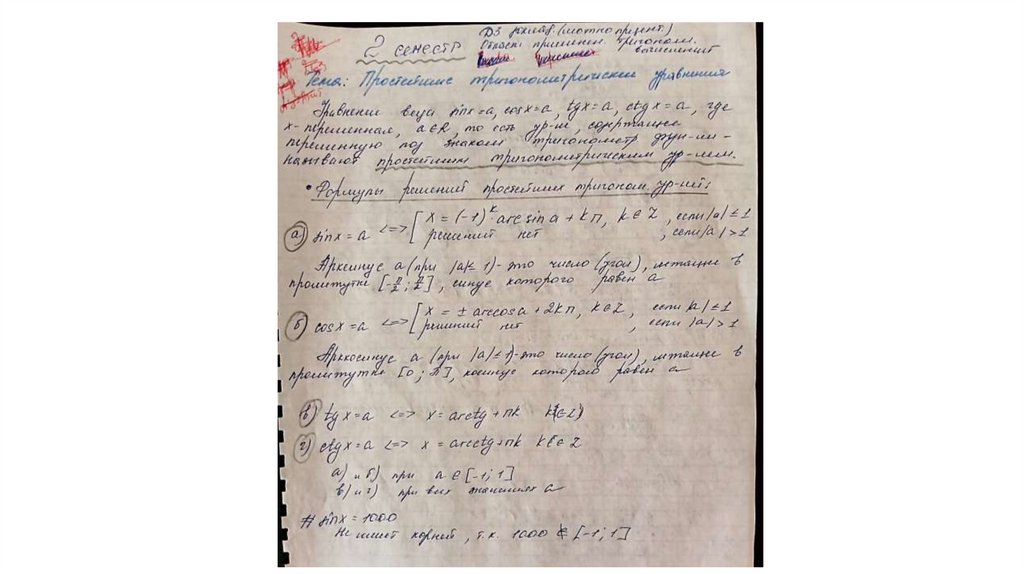 ДЗ доклад. (можно презент.)
2 семестр
Области применен. тригоном. вычислений
Тема: Простейшие тригонометрические уравнения
Уравнение вида sinx=a, cosx=a, tgx=a, ctgx=a, где
x-переменная, a∈R, то есть ур-ие, содержащие
переменную под знаком тригонометр. фун-ии-
называют простейшим тригонометрическим ур-ием.
• Формулы решений простейших тригоном. ур-ий:
а) sinx=a <=> [ x = (-1)^k · arcsin a + kπ, k∈Z, если |a| ≤ 1
решений нет , если |a| > 1
Арксинус a (при |a| ≤ 1) - это число (угол), лежащие в
промежутке [-π/2; π/2], синус которого равен a
б) cosx=a <=> [ x = ± arccos a + 2kπ, k∈Z, если |a| ≤ 1
решений нет , если |a| > 1
Арккосинус a (при |a| ≤ 1) - это число (угол), лежащие в
промежутке [0; π], косинус которого равен a
в) tgx=a <=> x = arctg + πk k∈Z
г) ctgx=a <=> x = arcctg + πk k∈Z
а) и б) при a∈[-1; 1]
в) и г) при всех значениях a
# sinx = 1000
Не имеет корней, т.к. 1000 ∉ [-1; 1]